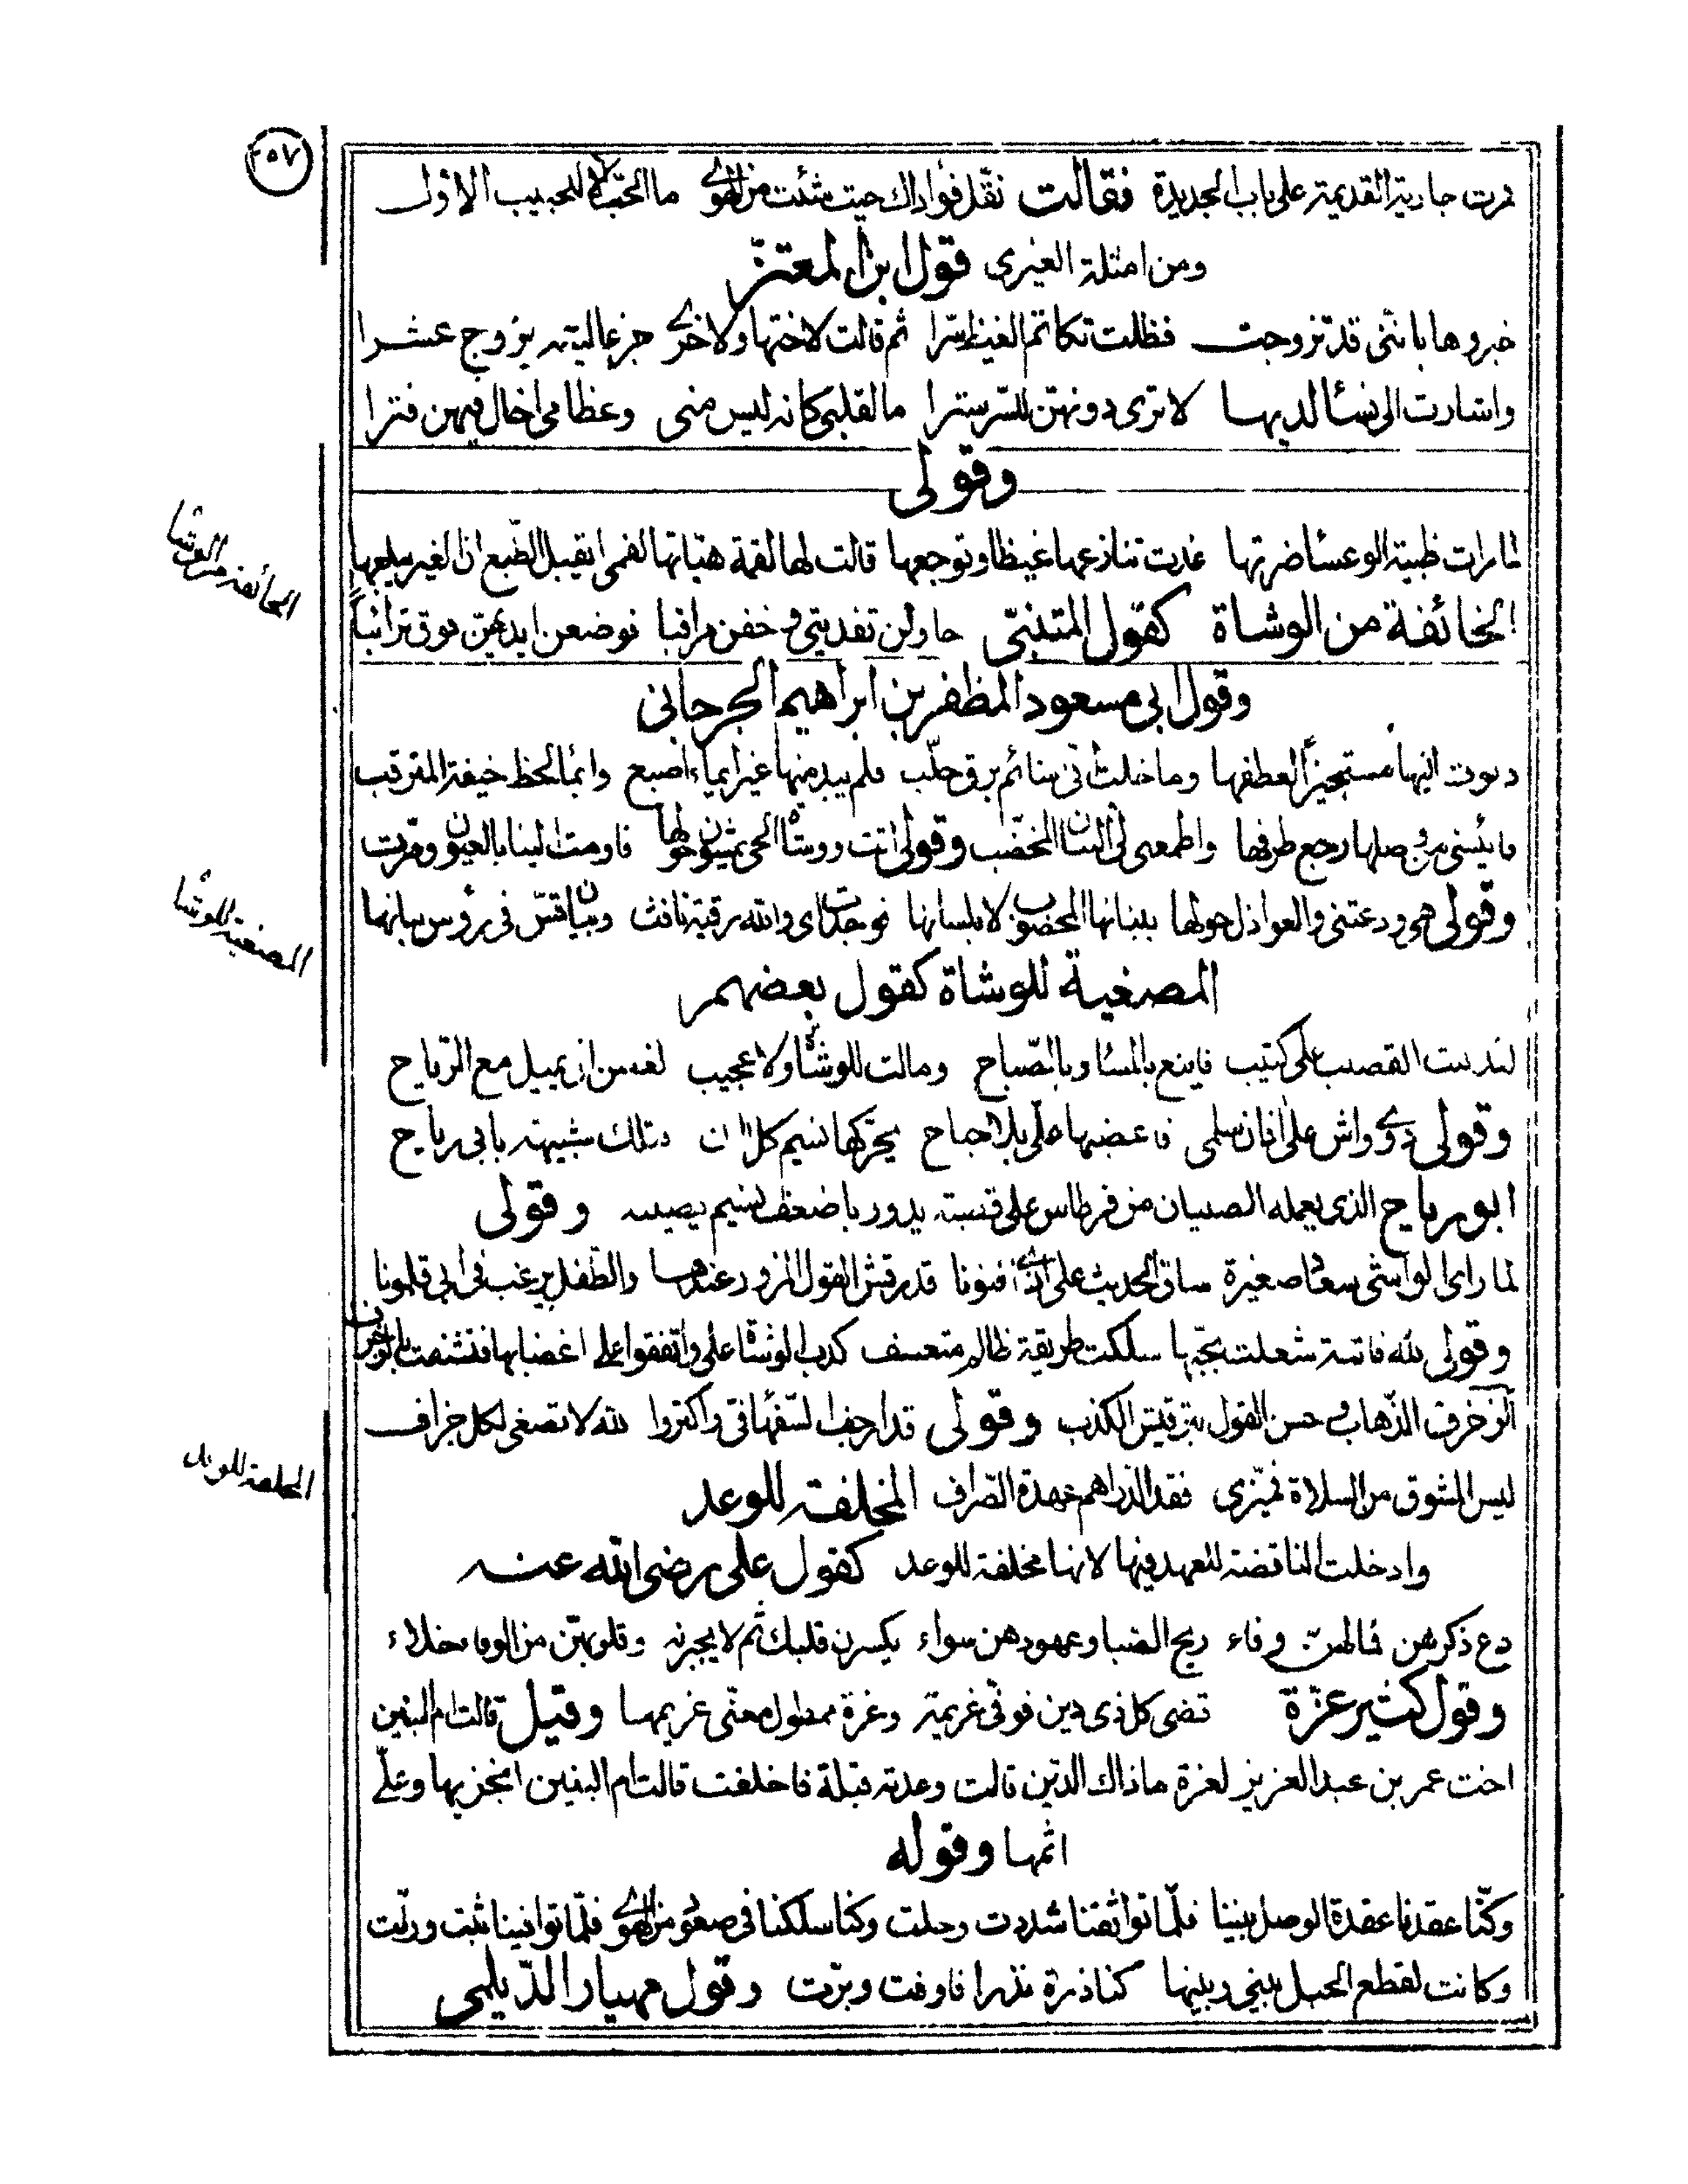 ٢٥٧
مرت جارية القديمة على باب الجديدة فقالت نقل فؤادك حيث شئت من الهوى ما الحب إلا للحبيب الاول
ومن امثلة الغيرى قول ابن المعتز
خبروها بانني قد تزوجت فظلت تكاتم الغيظ سرا ثم قالت لاختها ولاخرى جزعا ليته تزوج عشرا
واشارت الى نسا لديها لا ترى دونهن للسر سترا ما لقلبي كانه ليس مني وعظامي اخال فيهن فترا
وقولى
لما رات ظبية الوعسا ضرتها غدت تنازعها غيظا وتوجعها قالت لها لقمة هياتها لفمى ايقبل الطبع ان الغير يبلعها
الخائفة من الوشاة
الخائفة من الوشاة كقول المتنبّى حاولن تفديتي وخفن مراقبا فوضعن ايديهن فوق ترائبا
وقول ابى مسعود المظفر بن ابراهيم الجرجانى
دنوت اليها مستجيزا لعطفها وما خلت انى شائم برق خلّب فلم يبد منها غير ايماء اصبع وايما لحظ خيفة المترقب
فايئسنى من وصلها رجع طرفها واطمعنى لى البنان المخضّب وقولى اتت ووشاة الحى يمشون حولها فاومت الينا بالعيون ومرت
وقولى هى ودعتنى والعواذل حولها ببنانها المخضوب لا بلسانها نوجدت اى والله رقية نافث وبيان قسّ فى رؤس بنانها
المصغية للوشا
المصغية للوشاة كقول بعضهم
لقد نبت القضيب على كثيب فاينع بالمسا وبالصّباح ومالت للوشاة ولا عجيب لغصن ان يميل مع الرّياح
وقولى ذى واش على افنان سلمى فاغضبها على بلا جناح يحرّكها نسيم كل ان فتلك شبيهة بابى رياح
ابو رياح الذى يعمله الصبيان من قرطاس على قصبة يدور باضعف نسيم يصيبه وقولى
لما راى الواشى سعادا صغيرة ساق الحديث على اذى افنونا قد رقش القول المزور عندها والطفل يرغب فى ابى قلمونا
وقولى لله فاتنة شعلت بحبّها سلكت طريقة ظالم متعسف كذب الوشاة على واتفقوا على اغضابها فتشفت بالمزخرف
الزخرف الذّهاب وحسن القول بترقيش الكذب وقولى قد ارجف السّفهاء فىّ واكثروا لله لا تصغى لكل جزاف
ليس المشوق من السلاة فميّزى فقد الدراهم عهدة الصّراف المخلفة للوعد
المخلفة للوعد
وادخلت الناقضة للعهد فيها لانها مخلفة للوعد كقول على رضى الله عنه
دع ذكرهن فما لهن وفاء ريح الصبا وعهودهن سواء يكسرن قلبك ثم لا يجبرنه وقلوبهن من الوفاء خلاء
وقول كثير عزّة قضى كل ذى دين فوفى غريمه وعزة ممطول معنّى غريمها وقيل قالت ام البنين
اخت عمر بن عبد العزيز لعزة ما ذاك الدين قالت وعدته قبلة فاخلفت قالت ام البنين انجزيها وعلىّ
اثمها وقوله
وكنّا عقدنا عقدة الوصل بيننا فلمّا تواثقنا شددت وحلت وكنا سلكنا فى صعود من الهوى فلمّا توافينا ثبت وزلّت
وكانت لقطع الحبل بينى وبينها كناذرة نذرا فاوفت وبرّت وقول مهيار الدّيلمى